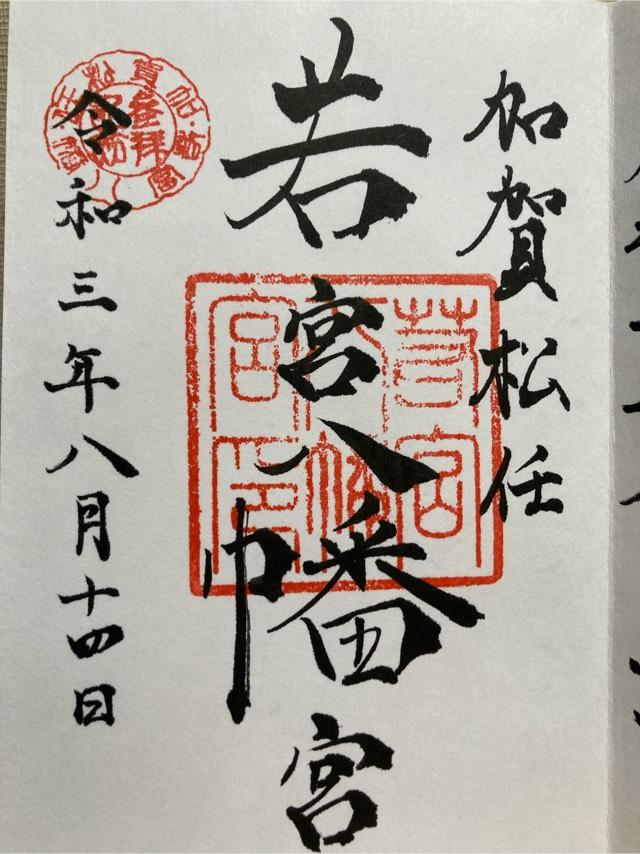 加賀松任
若宮八幡宮
令和三年八月十四日
若宮
八幡
宮印
参拝